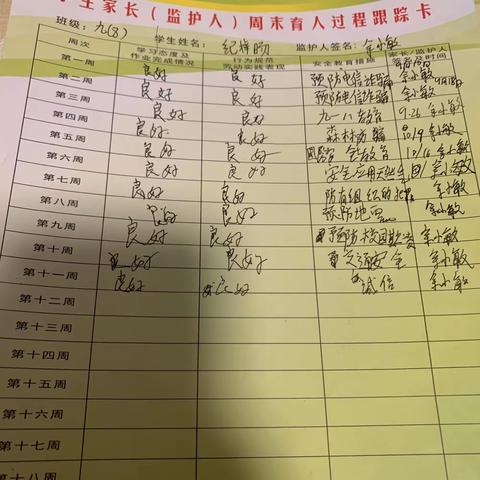 生家长（监护人）周末育人过程跟踪卡
班级：九(8) 学生姓名： 纪梓 监护人签名：余小敏
周次 学习态度及作业完成情况 行为规范劳动实践表现 安全教育措施 家长/监护人签名及时间
第一周 良好 良好 预防电信诈骗 余小敏
第二周 良好 良好 预防电信诈骗 余小敏
第三周 良好 良好 九一八教育 9.26 余小敏
第四周 良好 良好 森林防 余小敏
第五周 良好 良好 安全教育 余小敏
第六周 良好 良好 安全应 余小敏
第七周 良好 良好 防有组织的犯 余小敏
第八周 良好 良好 预防地 余小敏
第九周 良好 良好 预防校园欺 余小敏
第十周 良好 良好 交通安全 余小敏
第十一周 良好 良好 诚信 余小敏
第十二周
第十三周
第十四周
第十五周
第十六周
第十七周
第十八周